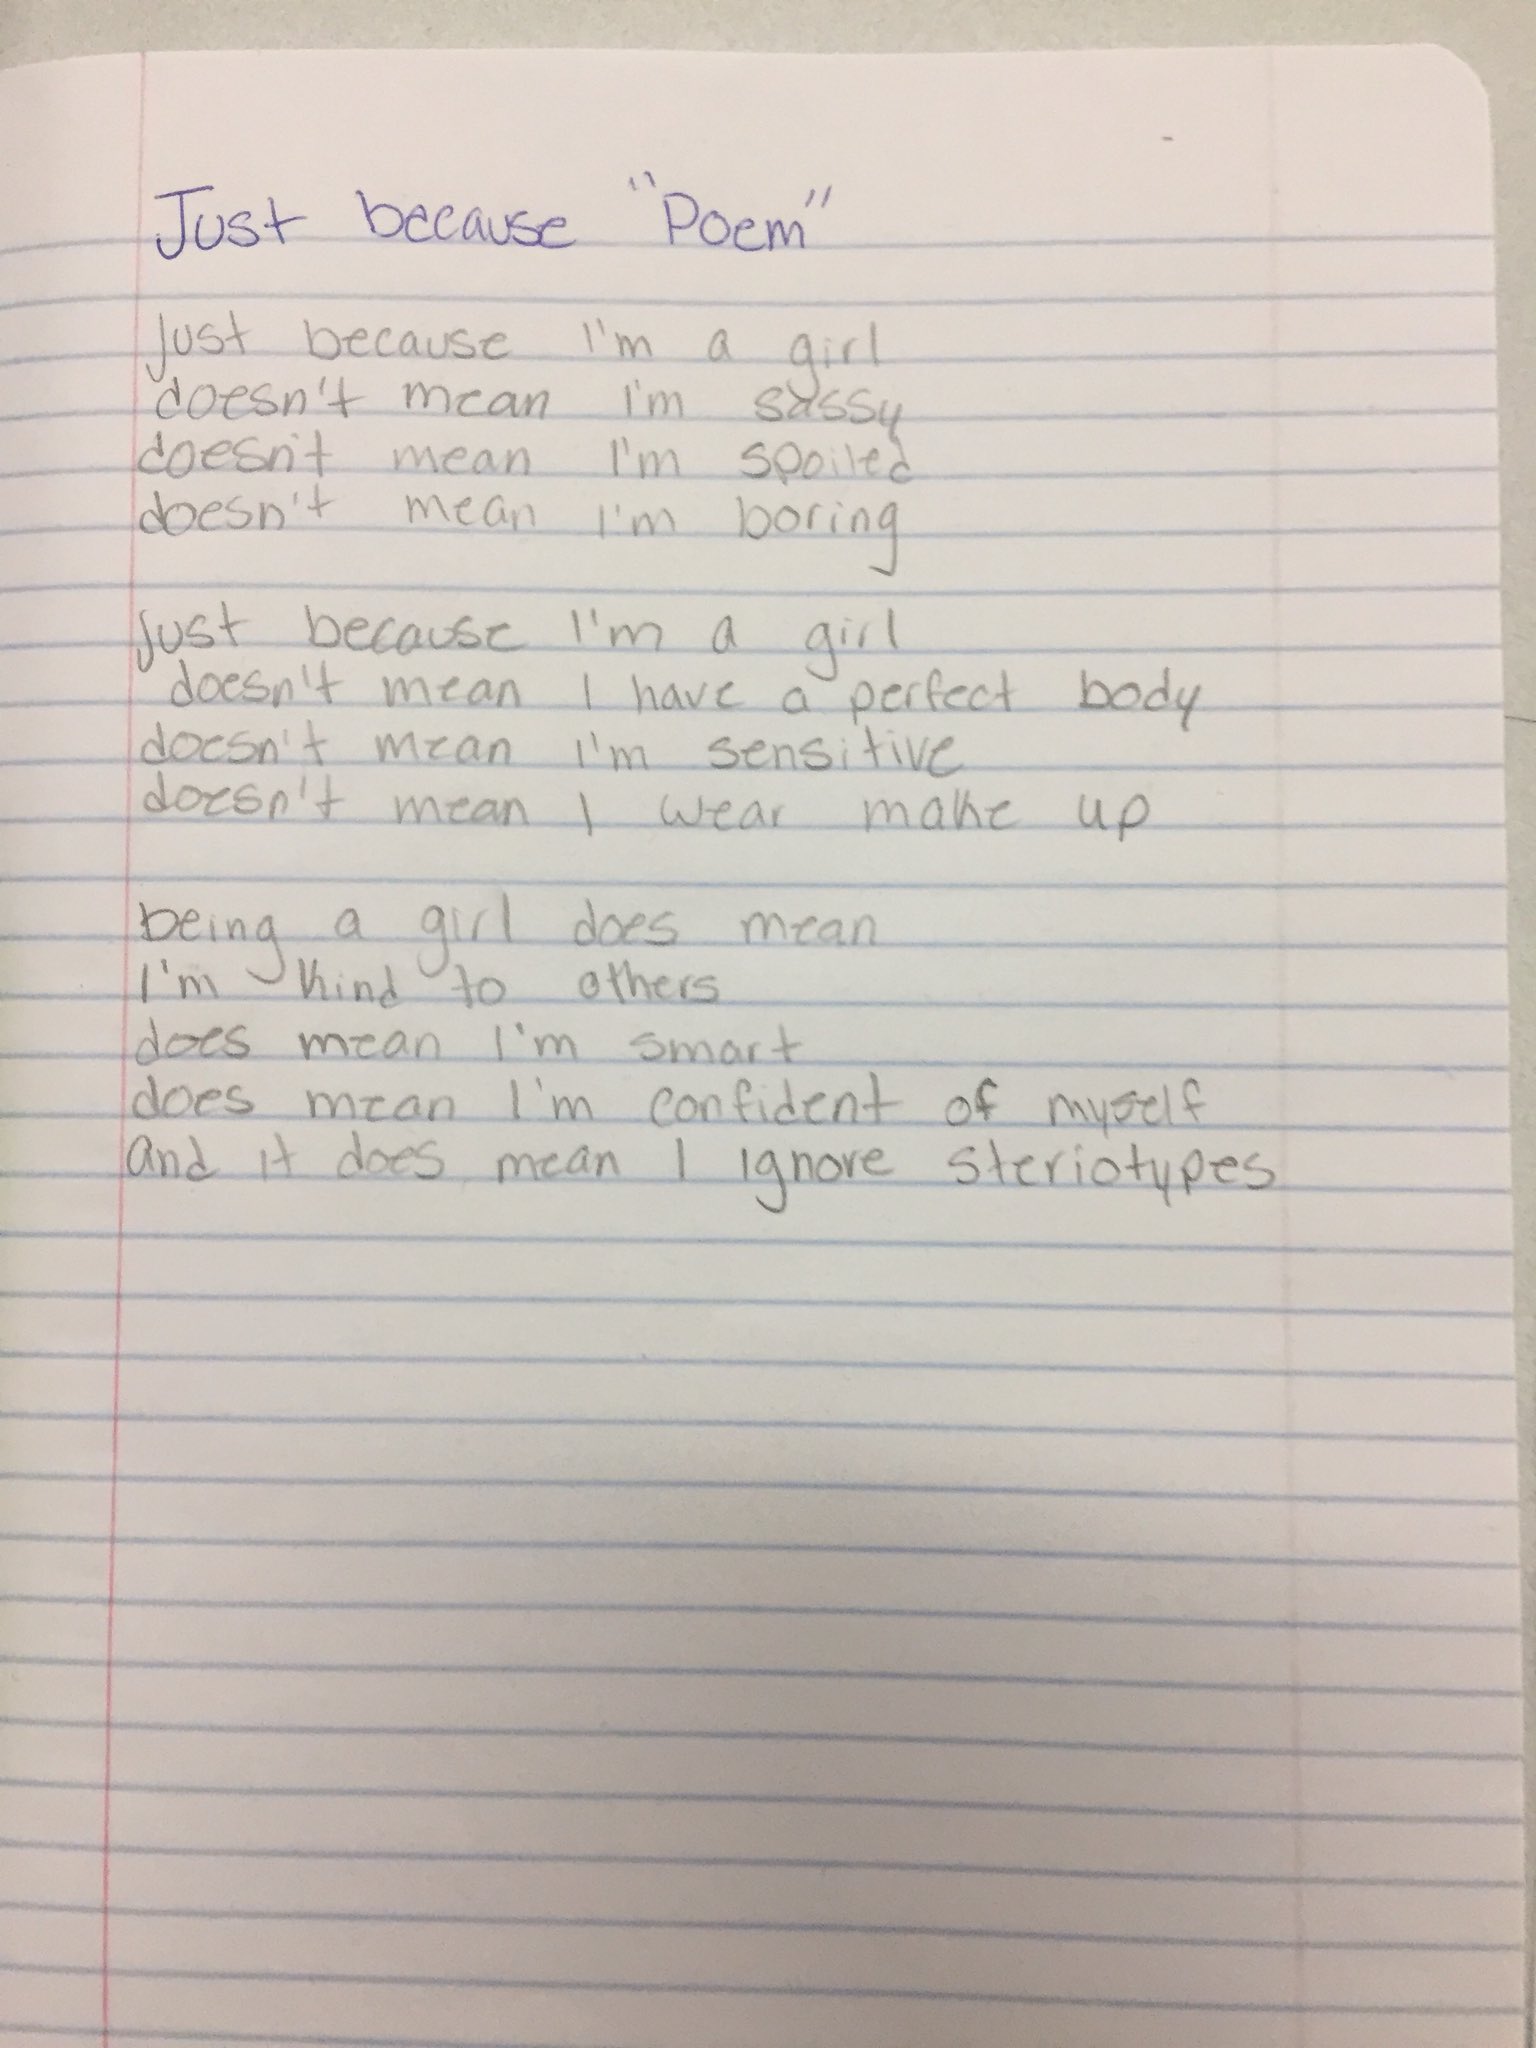 Just because "Poem"
just because I'm a girl
doesn't mean I'm sassy
doesn't mean I'm spoiled
doesn't mean I'm boring
just because I'm a girl
doesn't mean I have a perfect body
doesn't mean I'm sensitive
doesn't mean I wear make up
being a girl does mean
I'm kind to others
does mean I'm smart
does mean I'm confident of myself
and it does mean I ignore steriotypes